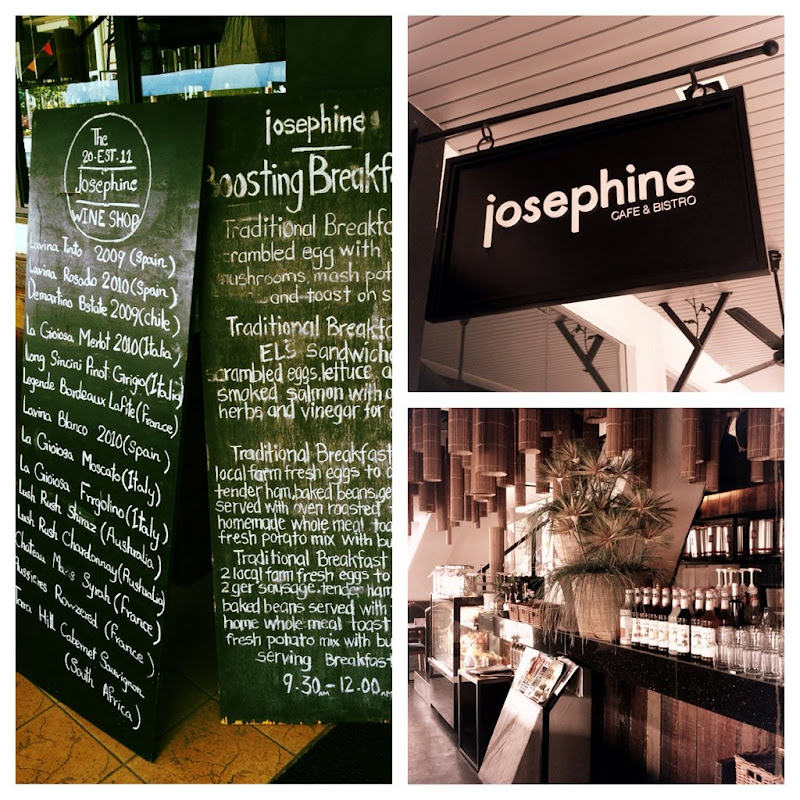 The
20.EST.11
Josephine
WINE SHOP
Lavina Tinto 2009 (Spain)
Lavina Rosado 2010 (Spain)
Demartino Estate 2009 (chile)
La Gioiosa Merlot 2010 (Italia)
Long Sincini Pinot Grigio (Italia)
Legende Bordeaux Lafite (France)
Lavina Blanco 2010 (Spain)
La Gioiosa Moscato (Italy)
La Gioiosa (Italy)
Lush Rush Shiraz (Australia)
Lush Rush Chardonnay (Australia)
Chateau Syrah (France)
(France)
Hill Cabernet Sauvignon
(South Africa)
josephine
Boosting Breakf
Traditional Breakfa
scrambled egg with
mushrooms mash pot
and toast on s
Traditional Breakfa
ELS sandwiche
scrambled eggs, lettuce a
smoked salmon with a
herbs and vinegar for
Traditional Breakfast
local farm fresh eggs to
tender ham, baked beans, ge
served with oven roasted
homemade whole meal toa
fresh potato mix with bu
Traditional Breakfast
2 local farm fresh eggs to
2 ger sausage, tender ham
baked beans served with
home whole meal toast
fresh potato mix with bu
serving Breakfast
9.30am - 12.00
josephine
CAFE & BISTRO